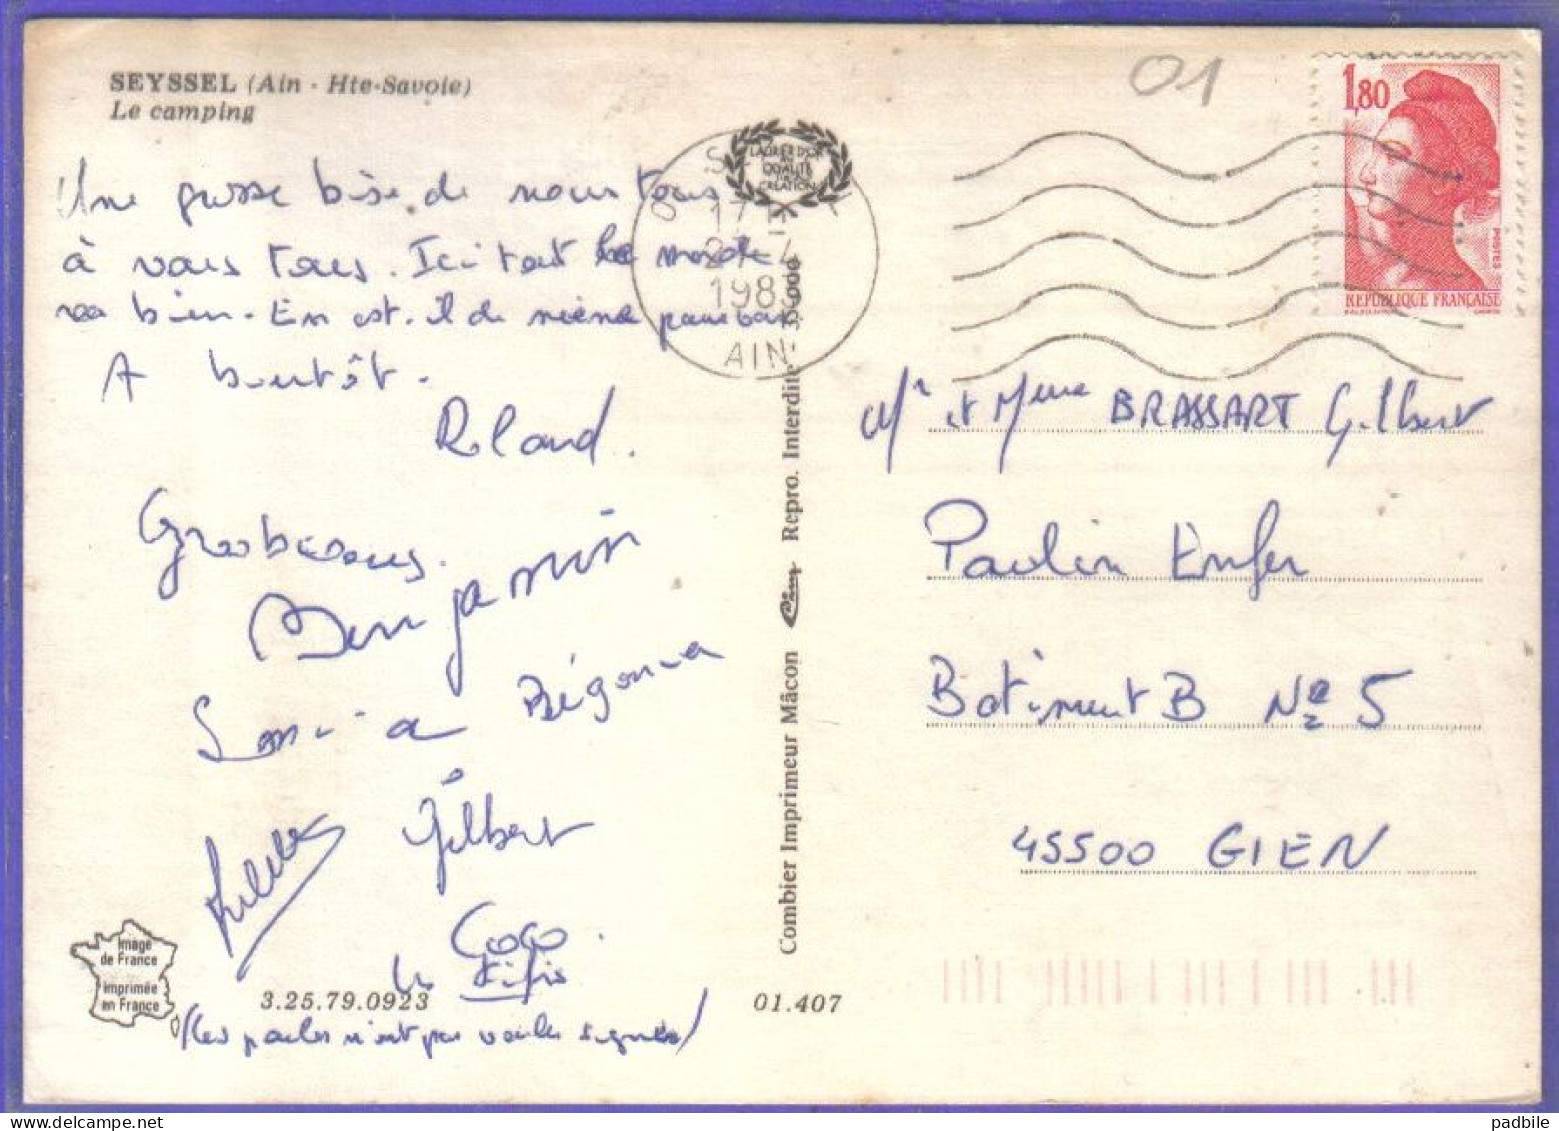 SEYSSEL (Ain - Hte-Savoie)
Le camping
01
1,80
POSTES
REPUBLIQUE FRANÇAISE
LAURIER D'OR
QUALITÉ
CRÉATION
1983
AIN
Une grosse bise de nous tous
à vous tous. Ici tout le monde
va bien. En est-il de même pour vous
A bientôt.
Roland.
Grosbisous.
Benjamin
Sonia Bégonia
Gilbert
Coco.
les
(les poules n'ont pas voulu signer)
Mr et Mme BRASSART Gilbert
Paulin Enfer
Batiment B No 5
45500 GIEN
Combier Imprimeur Mâcon Cim Repro. Interdite
Image
de France
Imprimée
en France
3.25.79.0923
01.407
padbile